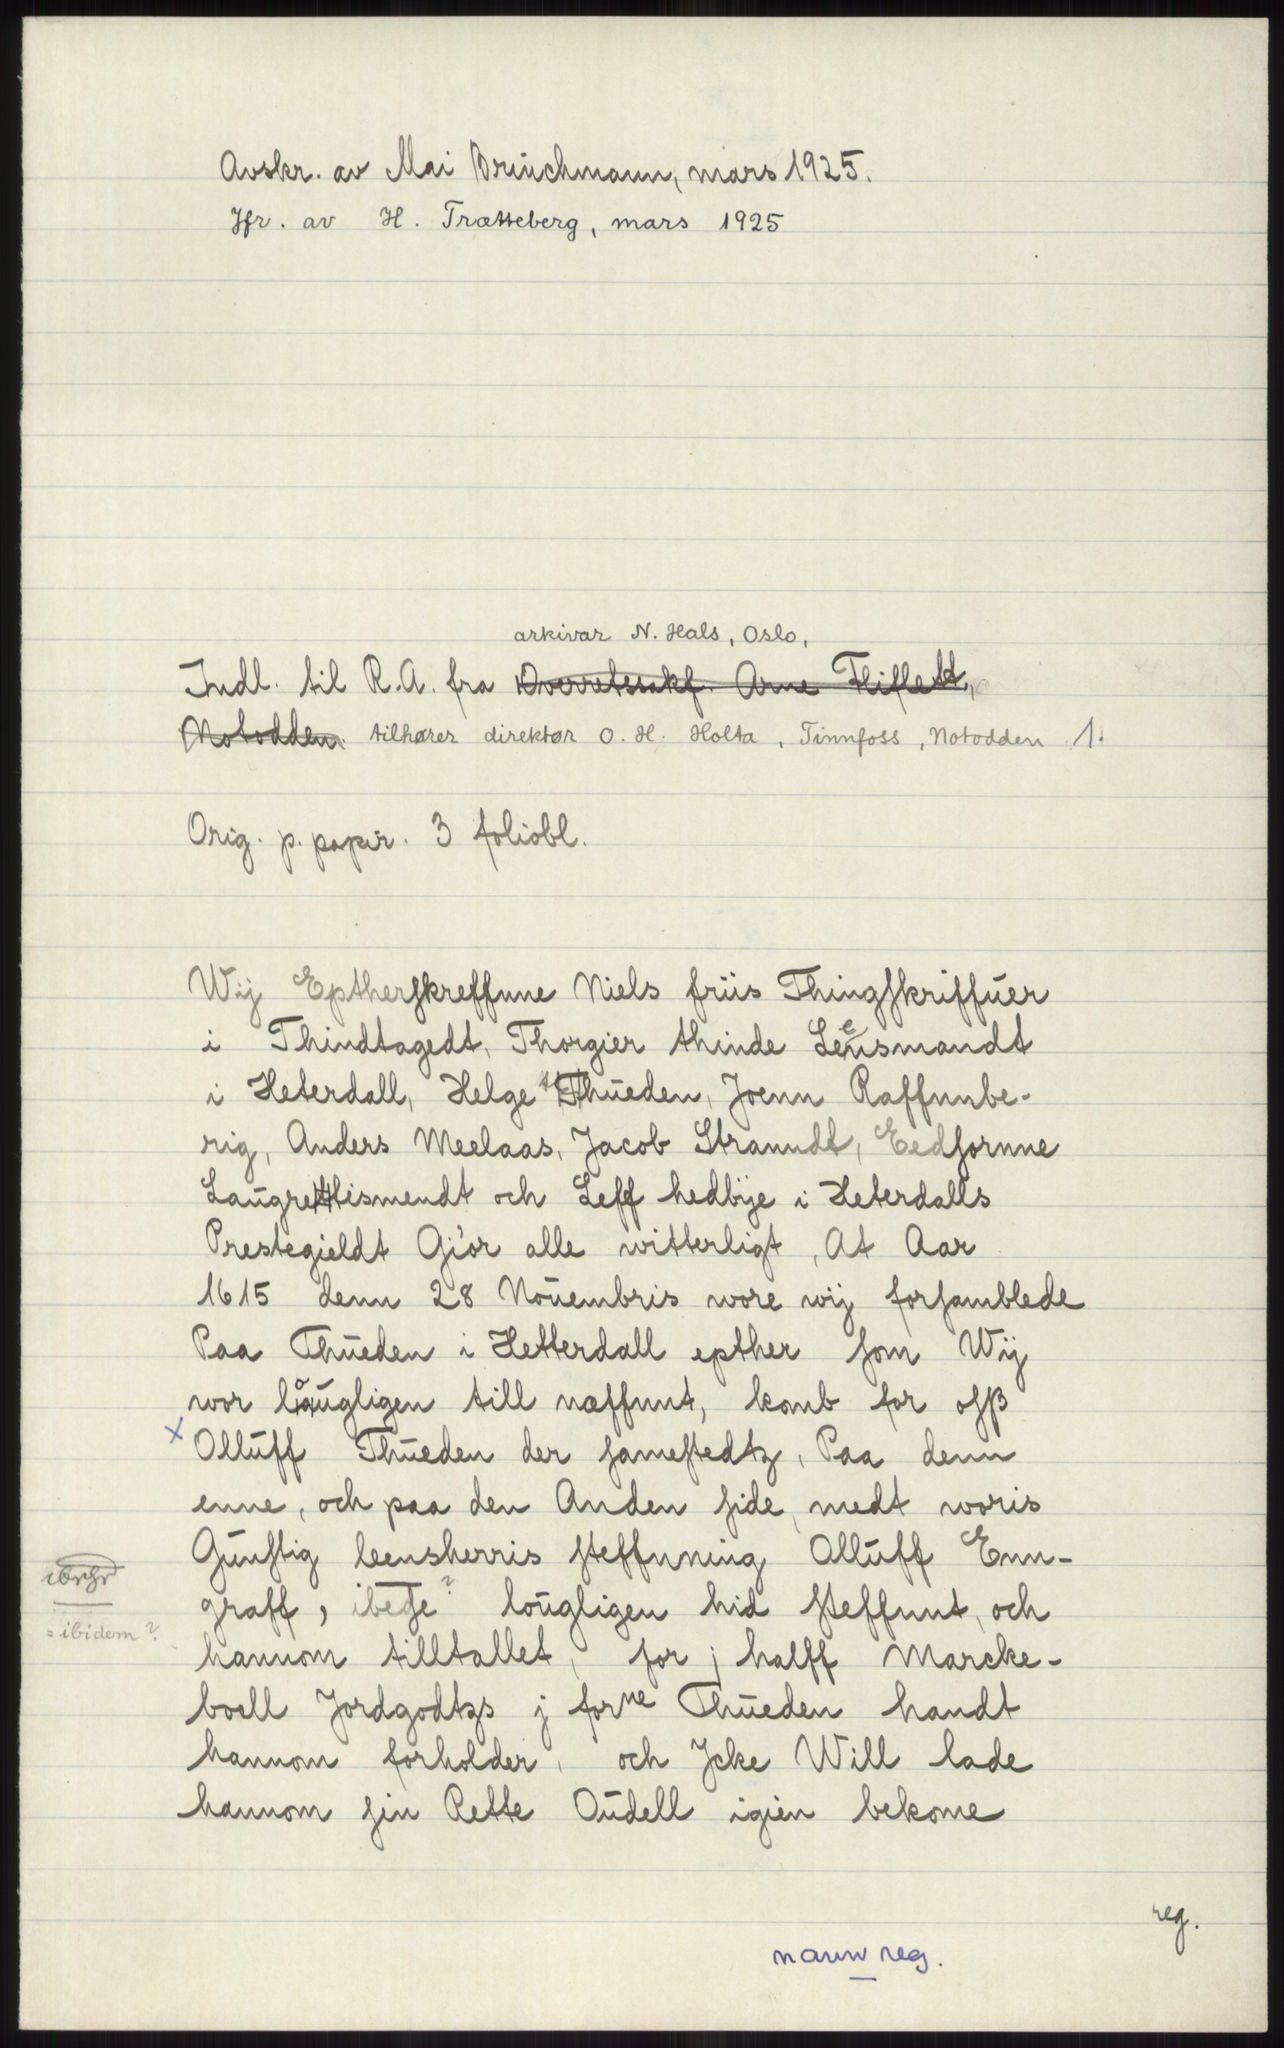 Avskr. av Mai Brüchmann, mars 1925.
Jfr. av H. Trætteberg, mars 1925
arkivar N. Hals, Oslo,
Indl. til R.A. fra Overretssakf. Arne Fliflett,
Notodden. tilhører direktør O. H. Holta, Tinnfoss, Notodden 1.
Orig. p. papir. 3 foliobl.
Wij Eptherskreffnne Niels friis Thingskriffŭer
i Thindtagedt, Thorgier thinde Leensmandt
i Heterdall, Helge Thŭeden, Joenn Raffnnbe-
rig, Anders Meelaas, Jacob Stranndt, Eedsornne
Laŭgrettismendt och Leff hedbÿe i Heterdalls
Prestegieldt Giør alle witterligt, At Aar
1615 denn 28 Noŭembris wore wij forsamblede
Paa Thŭeden i Hetterdall epther som Wij
wor låŭgligen till næffnnt, komb for osß
x Ollŭff Thŭeden der samestedtz, Paa denn
enne, och paa den Anden side, medt woris
Gŭnstig leensherris steffnning Ollŭff Enn-
graff, ibete? loŭgligen hid steffnnt, och
= ibidem?
hannom tilltallet, for j halff Marcke-
boell Jordgodtzs j forne Thŭeden handt
hannom forholder, och Jcke Will lade
hannom sin Rette Oŭdell igien bekome
reg.
navnreg.